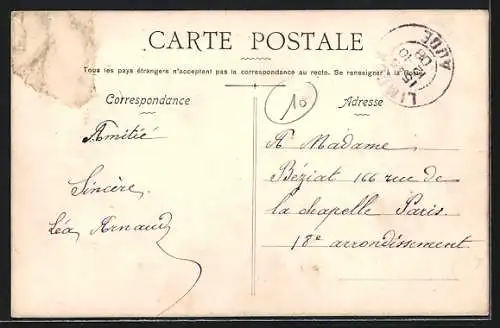 CARTE POSTALE
Tous les pays étrangers n'acceptent pas la correspondance au recto. Se renseigner à la Poste
Correspondance
Adresse
10
AUDE
Amitié
Sincère
Léa Arnaud
A Madame
Béziat 166 rue de
la chapelle Paris
18e arrondissement